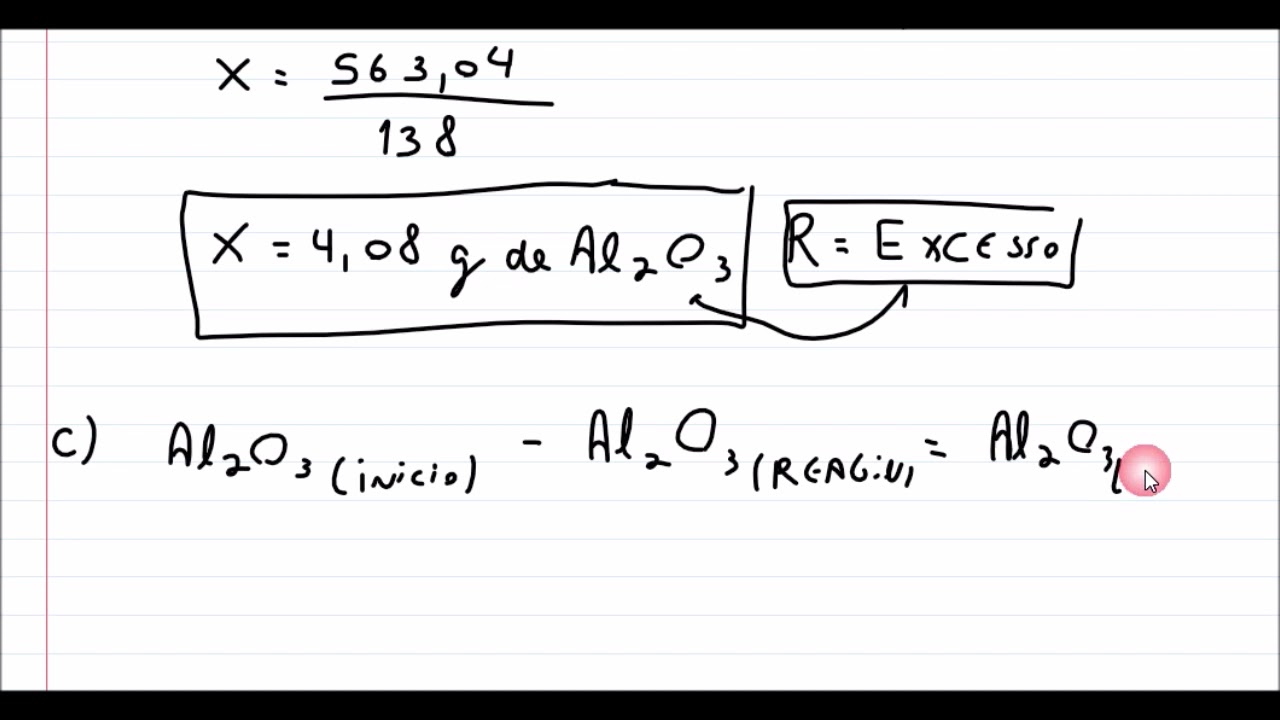 X = 563,04
138
X = 4,08 g de Al₂O₃ R = Excesso
c) Al₂O₃ (inicio) - Al₂O₃ (REAGIU) = Al₂O₃ (